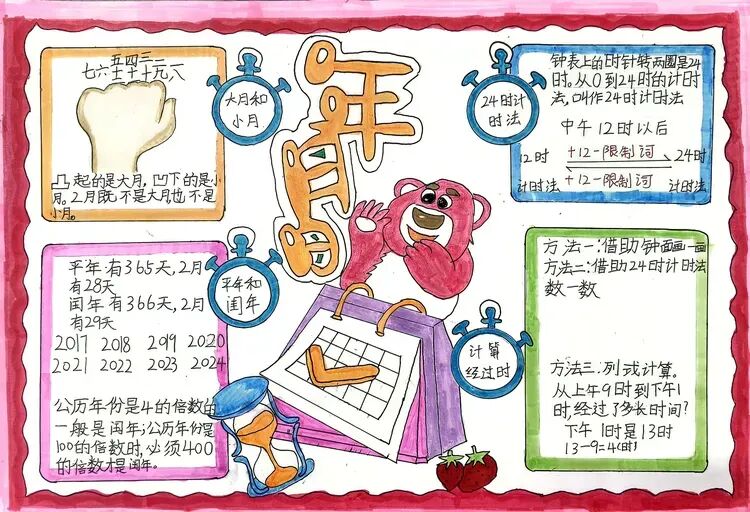 年月日
五四三二一
七六十九八
凸起的是大月,凹下的是小
月。2月既不是大月也不是
小月。
大月和
小月
24时计
时法
钟表上的时针转两圈是24
时。从0到24时的计时
法,叫作24时计时法
中午12时以后
12时 +12-限制词 24时
计时法 +12-限制词 计时法
平年有365天,2月
有28天
闰年有366天,2月
有29天
2017 2018 2019 2020
2021 2022 2023 2024
公历年份是4的倍数的
一般是闰年;公历年份是
100的倍数时,必须400
的倍数才是闰年。
平年和
闰年
计算
经过时
方法一:借助钟面画一画
方法二:借助24时计时法
数一数
方法三:列式计算。
从上午9时到下午1
时,经过了多长时间?
下午1时是13时
13-9=4(时)